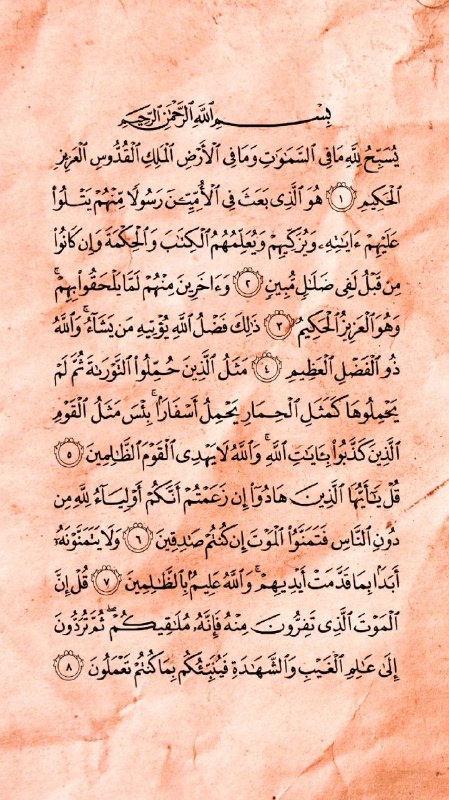 بِسْمِ اللَّهِ الرَّحْمَٰنِ الرَّحِيمِ
يُسَبِّحُ لِلَّهِ مَا فِي السَّمَاوَٰتِ وَمَا فِي الْأَرْضِ الْمَلِكِ الْقُدُّوسِ الْعَزِيزِ
الْحَكِيمِ ١ هُوَ الَّذِي بَعَثَ فِي الْأُمِّيِّـۧنَ رَسُولًا مِنْهُمْ يَتْلُوا۟
عَلَيْهِمْ ءَايَٰتِهِۦ وَيُزَكِّيهِمْ وَيُعَلِّمُهُمُ الْكِتَٰبَ وَالْحِكْمَةَ وَإِن كَانُوا۟
مِن قَبْلُ لَفِي ضَلَٰلٍ مُّبِينٍ ٢ وَءَاخَرِينَ مِنْهُمْ لَمَّا يَلْحَقُوا۟ بِهِمْ ۚ
وَهُوَ الْعَزِيزُ الْحَكِيمُ ٣ ذَٰلِكَ فَضْلُ اللَّهِ يُؤْتِيهِ مَن يَشَآءُ ۚ وَاللَّهُ
ذُو الْفَضْلِ الْعَظِيمِ ٤ مَثَلُ الَّذِينَ حُمِّلُوا۟ التَّوْرَىٰةَ ثُمَّ لَمْ
يَحْمِلُوهَا كَمَثَلِ الْحِمَارِ يَحْمِلُ أَسْفَارًۢا ۚ بِئْسَ مَثَلُ الْقَوْمِ
الَّذِينَ كَذَّبُوا۟ بِـَٔايَٰتِ اللَّهِ ۚ وَاللَّهُ لَا يَهْدِي الْقَوْمَ الظَّٰلِمِينَ ٥
قُلْ يَٰٓأَيُّهَا الَّذِينَ هَادُوٓا۟ إِن زَعَمْتُمْ أَنَّكُمْ أَوْلِيَآءُ لِلَّهِ مِن
دُونِ النَّاسِ فَتَمَنَّوُا۟ الْمَوْتَ إِن كُنتُمْ صَٰدِقِينَ ٦ وَلَا يَتَمَنَّوْنَهُۥٓ
أَبَدًۢا بِمَا قَدَّمَتْ أَيْدِيهِمْ ۚ وَاللَّهُ عَلِيمٌۢ بِالظَّٰلِمِينَ ٧ قُلْ إِنَّ
الْمَوْتَ الَّذِي تَفِرُّونَ مِنْهُ فَإِنَّهُۥ مُلَٰقِيكُمْ ۖ ثُمَّ تُرَدُّونَ
إِلَىٰ عَٰلِمِ الْغَيْبِ وَالشَّهَٰدَةِ فَيُنَبِّئُكُم بِمَا كُنتُمْ تَعْمَلُونَ ٨